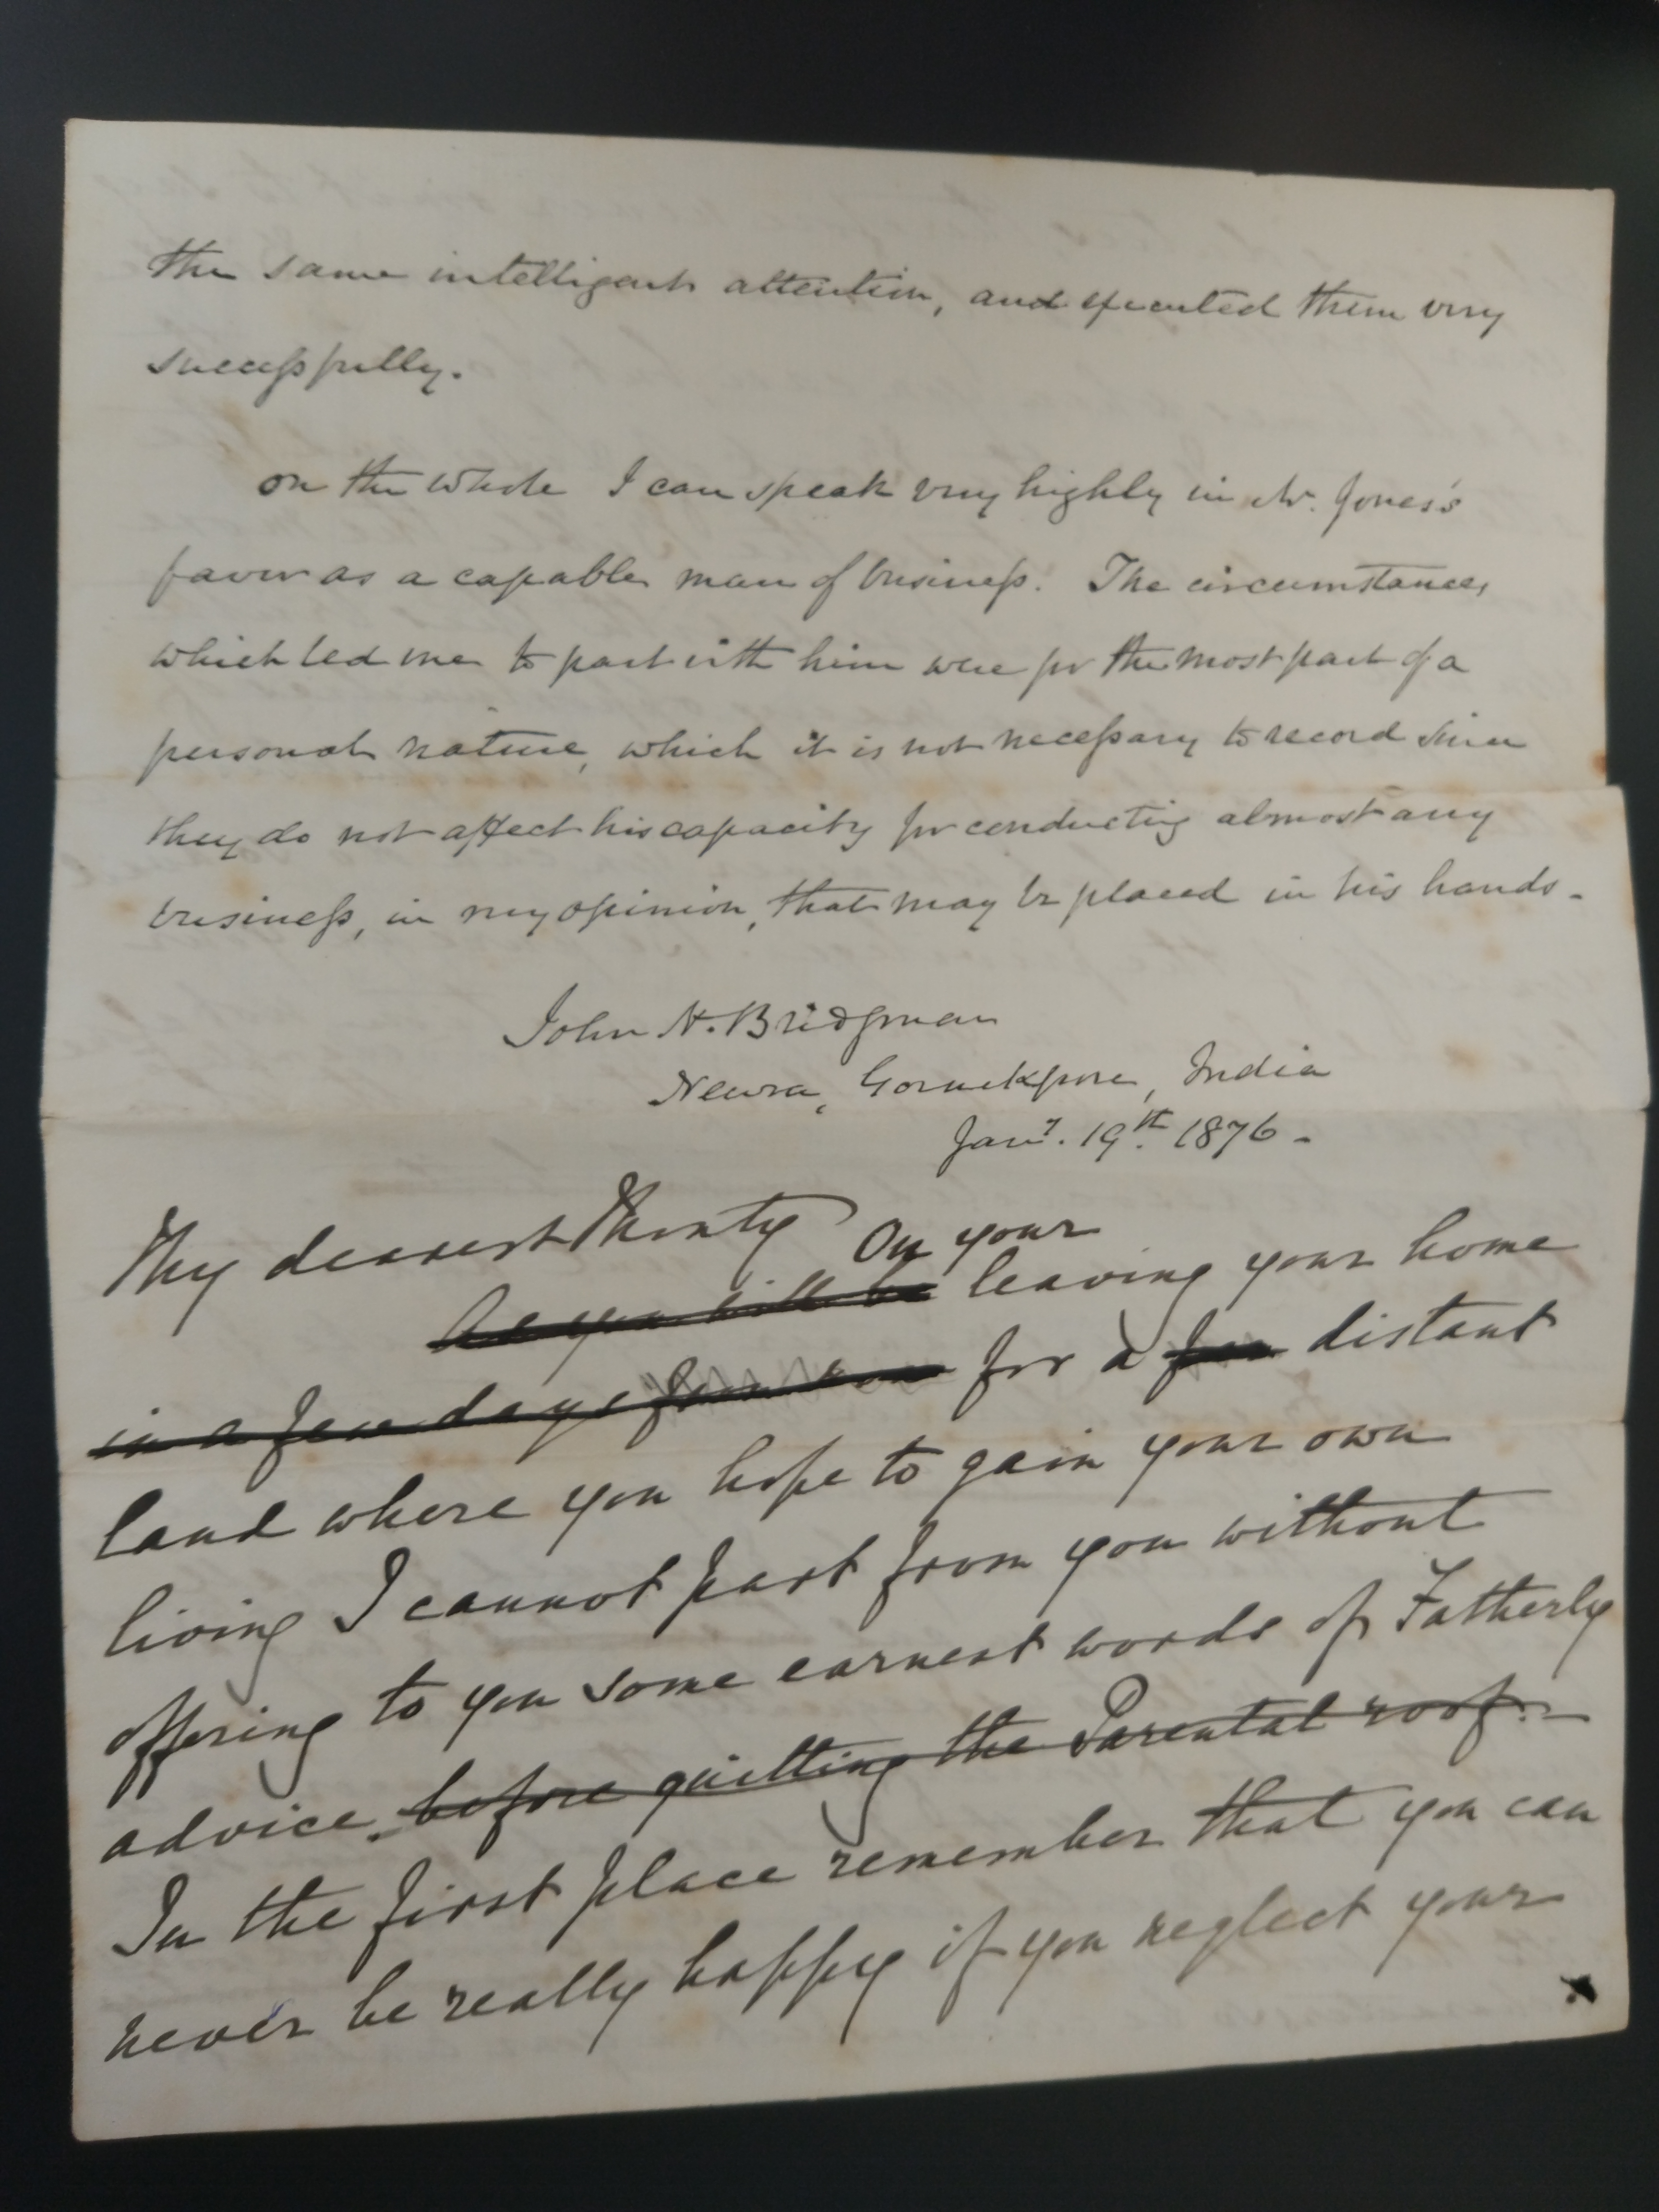 the same intelligent attention, and executed them very
successfully.
on the whole I can speak very highly in Mr. Jones's
favor as a capable man of business. The circumstances
which led me to part with him were for the most part of a
personal nature, which it is not necessary to record since
they do not affect his capacity for conducting almost any
business, in my opinion, that may be placed in his hands.
John H. Bridgman
Newra, Goruckpore, India
Jany. 19th. 1876 -
My dearest
On your
As you will be leaving your home
in a few days for a far distant
land where you hope to gain your own
living I cannot part from you without
offering to you some earnest words of Fatherly
advice. before quitting the Parental roof. -
In the first place remember that you can
never be really happy if you neglect your